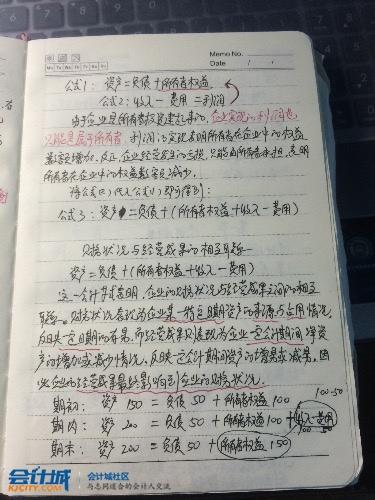 Memo No.
Mo Tu We Th Fr Sa Su
Date / /
公式1: 资产=负债+所有者权益
公式2: 收入-费用=利润
由于企业是所有者投资建起来的,企业实现的利润也
只能是属于所有者,利润的实现表明所有者在企业中的权益
数额增加,反之,企业经营发生的亏损,只能由所有者承担,表明
所有者在企业中的权益数额减少。
将公式(2)代入公式(1)即可得到:
公式3: 资产=负债+(所有者权益+收入-费用)
财务状况与经营成果的相互联系
资产=负债+(所有者权益+收入-费用)
这一会计等式表明,企业的财务状况与经营成果之间的相互
联系。财务状况表现为企业某一特定日期资产的来源与占用情况,
反映一定日期的结果。而经营成果则表现为企业一定会计期间净资
产的增加或减少情况,反映一定会计期间资产的增加或减少。因
此企业的经营成果最终影响到企业的财务状况。
期初: 资产 150 = 负债 50 + 所有者权益 100
100-50
期内: 资产 200 = 负债 50 + 所有者权益 100 + 收入-费用
期末: 资产 200 = 负债 50 + 所有者权益 150
会计城
KJCITY.COM
会计城社区
与志同道合的会计人交流